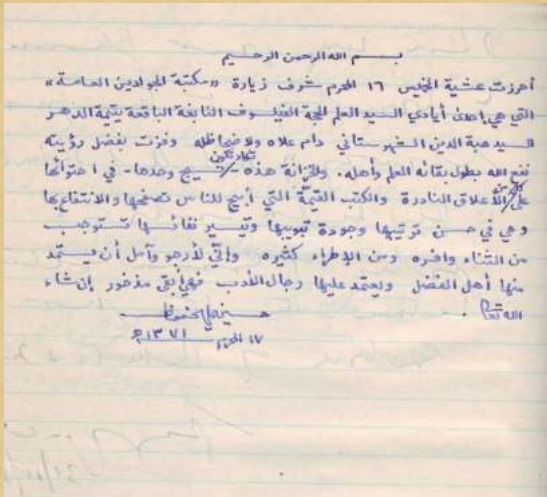 بسم الله الرحمن الرحيم
أحرزت عشية الخميس ١٦ المحرم شرف زيارة «مكتبة الجوادين العامة»
التي هي احدى أيادي السيد العلم الحجة الفيلسوف النابغة الباقعة يتيمة الدهر
السيد هبة الدين الشهرستاني دام علاه ولا ضحا ظله وفزت بفضل رؤيته
نفع الله بطول بقائه العلم وأهله. وللخزانة هذه تكاد تكون نسيج وحدها - في احتوائها
على الأعلاق النادرة والكتب القيمة التي أبيح للناس تصفحها والانتفاع بها
وهي في حسن ترتيبها وجودة تبويبها وتيسير نفائسها تستوجب
من الثناء وافره ومن الإطراء كثيره وإني لأرجو وآمل أن يستمد
منها أهل الفضل ويعتمد عليها رجال الأدب فهي أبقى مذخور إن شاء
الله تعالى.
حسين علي محفوظ
١٧ المحرم ١٣٧١